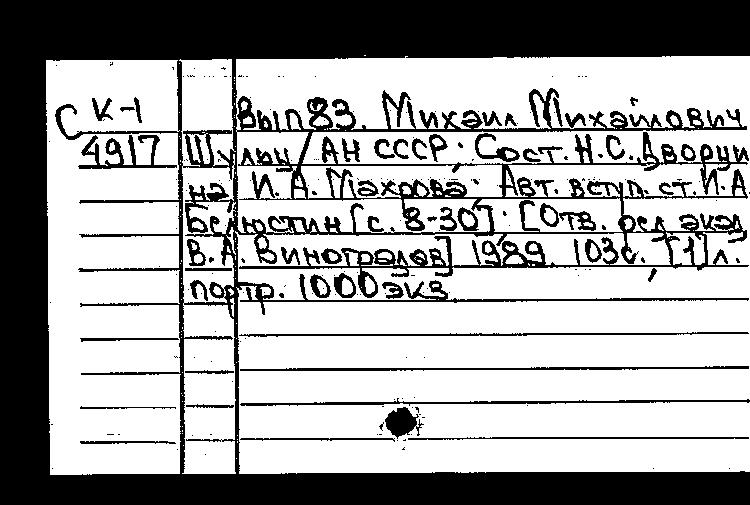 С К-1 Вып 83. Михаил Михайлович
4917 Шульц / АН СССР; Сост. Н.С. Дворци
на, И.А. Махрова; Авт. вступ. ст. И.А
Белюстин [с. 8-30]; [Отв. ред. акад.
В.А. Виноградов] 1989. 103с., [1] л.
портр. 1000 экз.